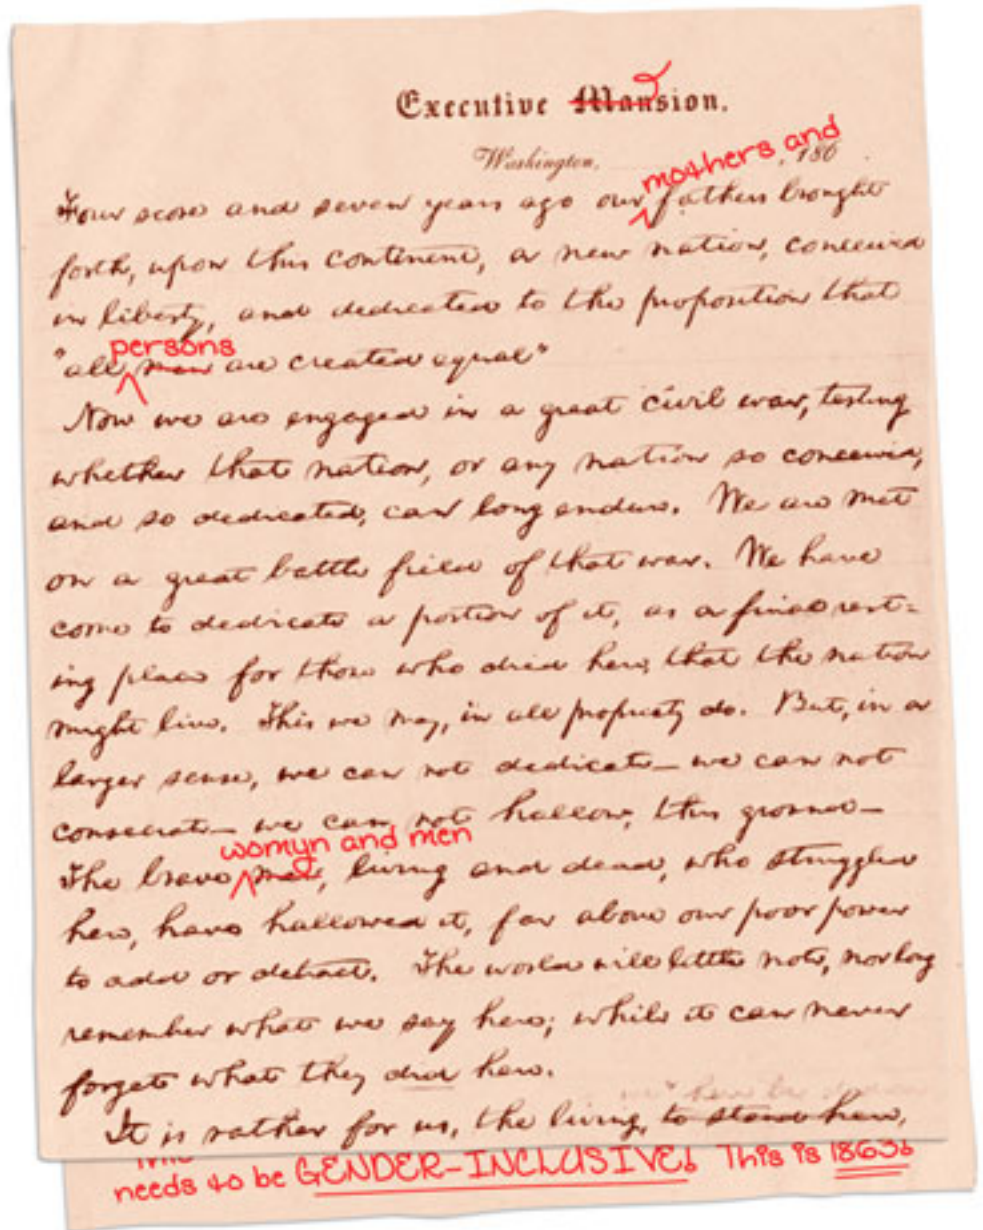 Executive Mansion.
mothers and
Washington, , 186 .
Four score and seven years ago our fathers brought
forth, upon this continent, a new nation, conceived
in liberty, and dedicated to the proposition that
persons
"all men are created equal"
Now we are engaged in a great civil war, testing
whether that nation, or any nation so conceived,
and so dedicated, can long endure. We are met
on a great battle field of that war. We have
come to dedicate a portion of it, as a final rest-
ing place for those who died here, that the nation
might live. This we may, in all propriety do. But, in a
larger sense, we can not dedicate — we can not
consecrate — we can not hallow, this ground —
womyn and men
The brave men, living and dead, who struggled
here, have hallowed it, far above our poor power
to add or detract. The world will little note, nor long
remember what we say here; while it can never
forget what they did here.
It is rather for us, the living, to stand here,
needs to be GENDER-INCLUSIVE! This is 1863!